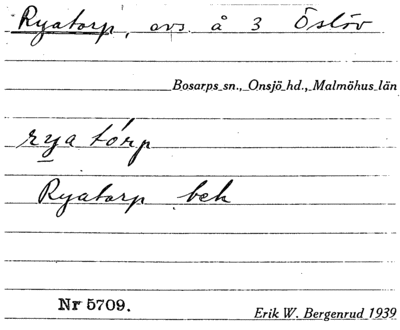 Ryatorp, avs å 3 Öslöv
Bosarps sn., Onsjö hd., Malmöhus län
rya tórp
Ryatorp beh
Nr 5709.
Erik W. Bergenrud 1939